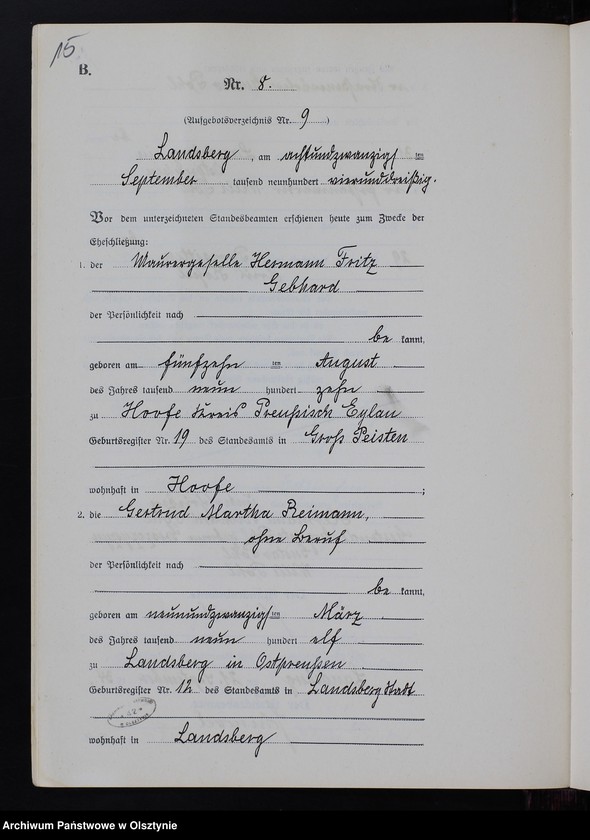 15
B.
Nr. 8.
(Aufgebotsverzeichnis Nr. 9)
Landsberg, am achtundzwanzigsten
September tausend neunhundert vierunddreißig.
Vor dem unterzeichneten Standesbeamten erschienen heute zum Zwecke der
Eheschließung:
1. der Maurergeselle Hermann Fritz
Gebhard
der Persönlichkeit nach
be kannt,
geboren am fünfzehn ten August
des Jahres tausend neun hundert zehn
zu Hoofe Kreis Preußisch Eylau
Geburtsregister Nr. 19 des Standesamts in Groß Peisten
wohnhaft in Hoofe ;
2. die Gertrud Martha Reimann,
ohne Beruf
der Persönlichkeit nach
be kannt,
geboren am neunundzwanzigsten März
des Jahres tausend neun hundert elf
zu Landsberg in Ostpreußen
Geburtsregister Nr. 12 des Standesamts in Landsberg Stadt
wohnhaft in Landsberg
Archiwum Państwowe w Olsztynie